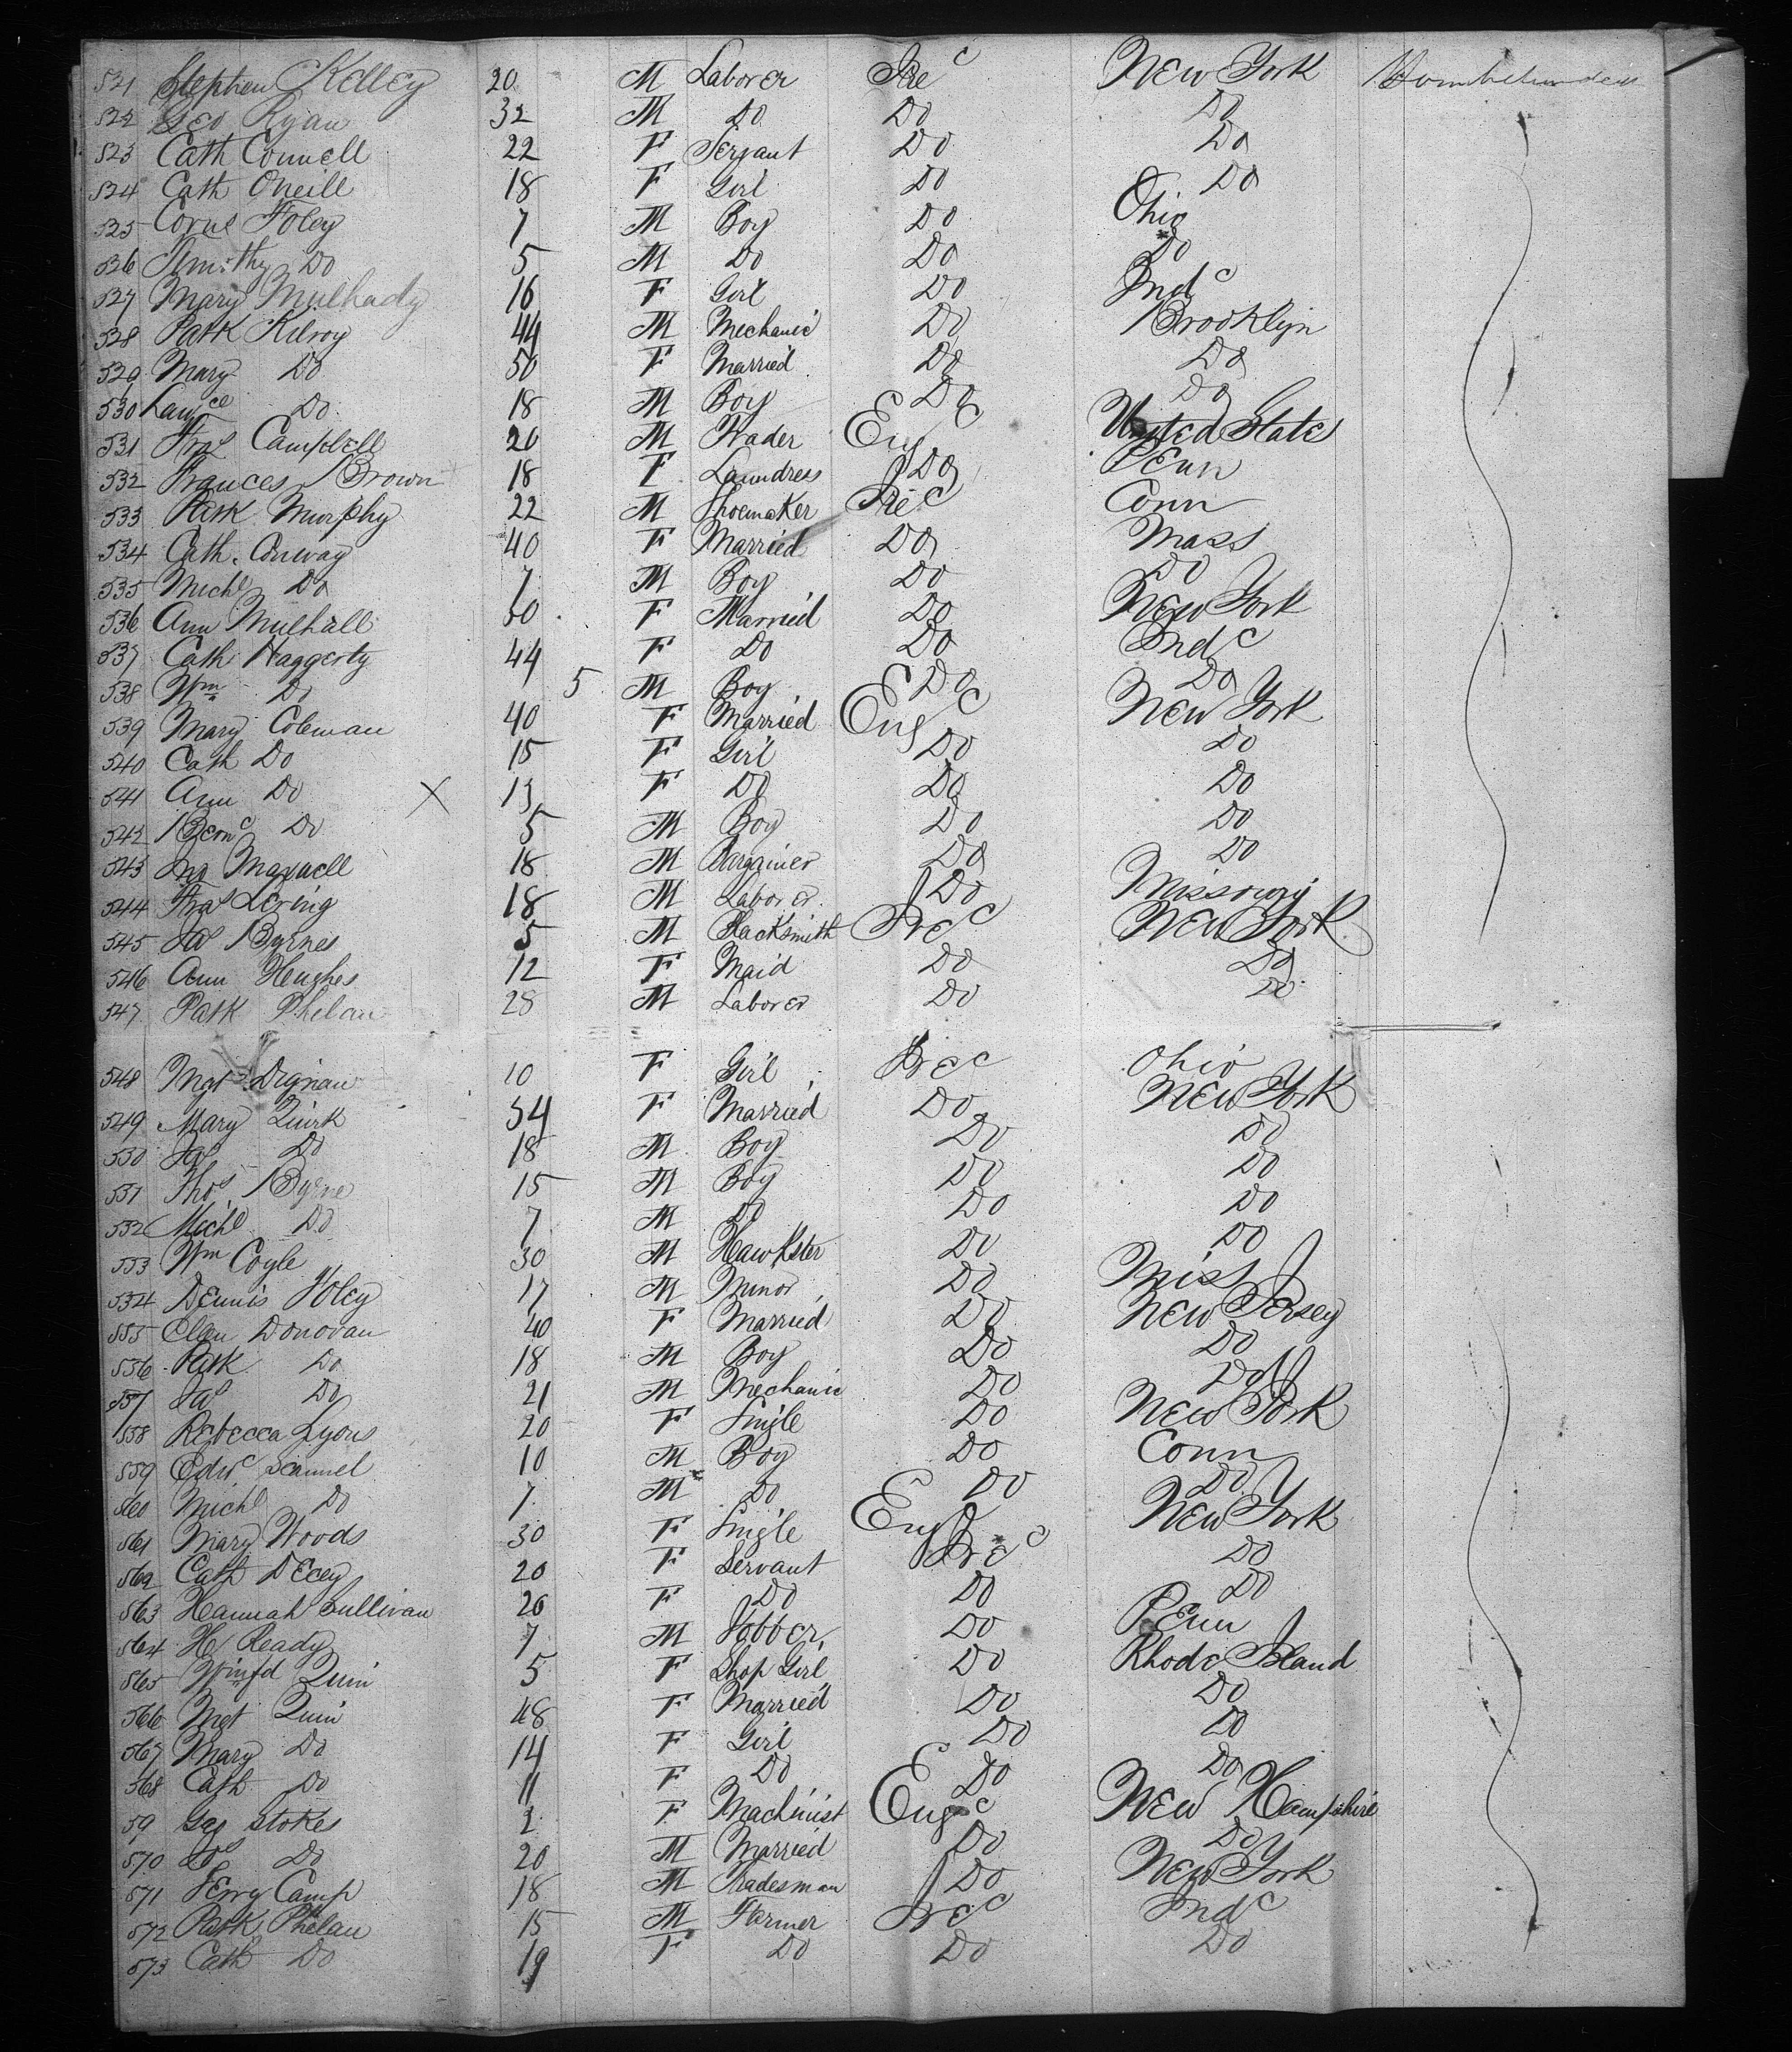 521 Stephen Kelley 20 M Laborer Ire c New York
522 Geo Ryan 32 M Do Do Do
523 Cath Connell 22 F Servant Do Do
524 Cath Oneill 18 F Girl Do Do
525 Foley 7 M Boy Do Ohio
526 Do 5 M Do Do Do
527 Mary Mulhady 16 F Girl Do Ind c
528 Patk Kilroy 44 M Mechanic Do Brooklyn
529 Mary Do 50 F Married Do Do
530 Lawce Do 18 M Boy Do Do
531 Campbell 20 M Trader Eng c United States
532 Frances Brown 18 F Laundress Do Penn
533 Patk Murphy 22 M Shoemaker Ire c Conn
534 Cath. Conway 40 F Married Do Mass
535 Michl Do 7 M Boy Do Do
536 Ann Mulhall 50 F Married Do New York
537 Cath Haggerty 44 F Do Do Ind c
538 Wm Do 5 M Boy Do Do
539 Mary Coleman 40 F Married Eng c New York
540 Cath Do 15 F Girl Do Do
541 Ann Do X 13 F Do Do Do
542 Do 5 M Boy Do Do
543 Jno Maxwell 18 M Do Do
544 Lering 18 M Laborer Do Missoury
545 Jas Byrnes 5 M Blacksmith Ire c New York
546 Ann Hughes 12 F Maid Do Do
547 Patk Phelan 28 M Laborer Do Do
548 Mgt Dignan 10 F Girl Ire c Ohio
549 Mary Quirk 54 F Married Do New York
550 Jas Do 18 M Boy Do Do
551 Thos Byrne 15 M Boy Do Do
552 Michl Do 7 M Do Do Do
553 Wm Coyle 30 M Hawkster Do Do
554 Dennis Foley 17 M Minor Do Miss
555 Ellen Donovan 40 F Married Do New Jersey
556 Patk Do 18 M Boy Do Do
557 Jas Do 21 M Mechanic Do Do
558 Rebecca Lyons 20 F Single Do New York
559 Edwd Scannel 10 M Boy Do Conn
560 Michl Do 7 M Do Do Do
561 Mary Woods 30 F Single Eng New York
562 Cath Decey 20 F Servant Ire c Do
563 Hannah Sullivan 20 F Do Do Do
564 H Ready 7 M Jobber Do Penn
565 Winfd Quin 5 F Shop Girl Do Rhode Island
566 Mgt Quin 48 F Married Do Do
567 Mary Do 14 F Girl Do Do
568 Cath Do 11 F Do Do Do
59 Stokes 2 F Machinist Eng c New Hampshire
570 Do 20 M Married Do Do
571 Camp 18 M Tradesman Do New York
572 Patk Phelan 15 M Farmer Ire c Ind c
573 Cath Do 19 F Do Do Do